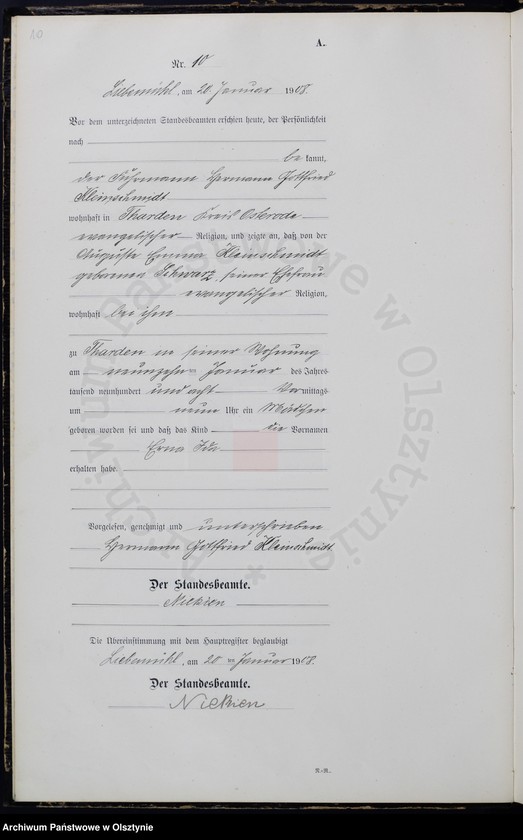 10
A.
Nr. 10
Liebemühl, am 20. Januar 1908.
Vor dem unterzeichneten Standesbeamten erschien heute, der Persönlichkeit
nach
be kannt,
der Fuhrmann Hermann Gottfried
Kleinschmidt
wohnhaft in Tharden Kreis Osterode
evangelischer Religion, und zeigte an, daß von der
Auguste Emma Kleinschmidt
geborenen Schwarz, seiner Ehefrau
evangelischer Religion,
wohnhaft bei ihm
zu Tharden in seiner Wohnung
am neunzehn ten Januar des Jahres
tausend neunhundert und acht Vormittags
um neun Uhr ein Mädchen
geboren worden sei und daß das Kind die Vornamen
Erna Ida
erhalten habe.
Vorgelesen, genehmigt und unterschrieben
Hermann Gottfried Kleinschmidt
Der Standesbeamte.
Die Übereinstimmung mit dem Hauptregister beglaubigt
Liebemühl, am 20 ten Januar 1908.
Der Standesbeamte.
R.-R.
Archiwum Państwowe w Olsztynie
* Archiwum Państwowe w Olsztynie